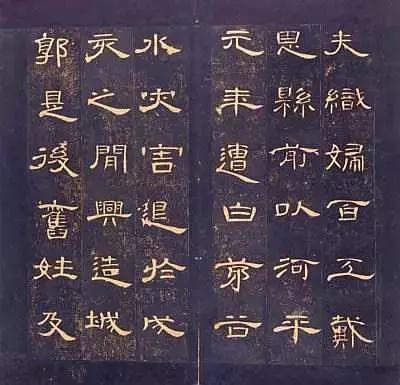 夫織婦百工戴
恩縣前以河平
元年遭白茅谷
水災害退於戌
亥之間興造城
郭是後舊姓及